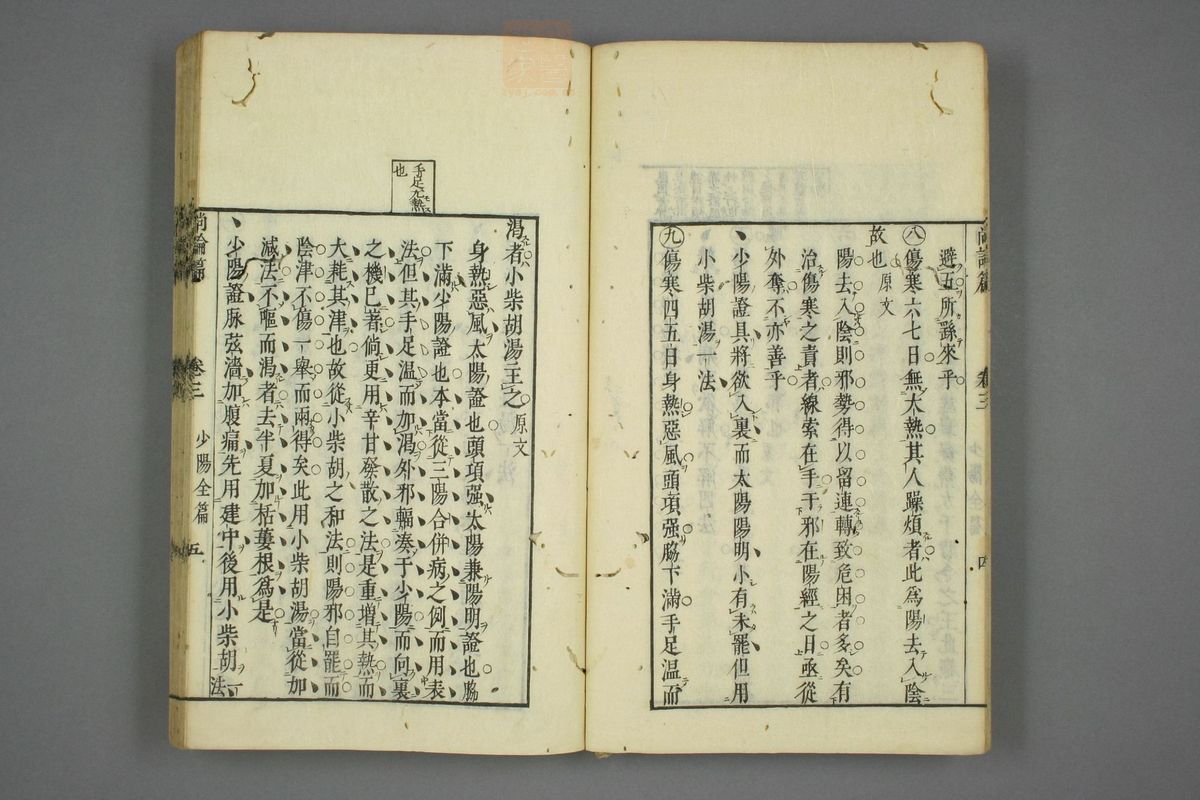 避五所繇來乎
八傷寒六七日無大熱其人躁煩者此爲陽去入陰
故也原文
陽去入陰則邪勢得以留連轉致危困者多矣有
治傷寒之責者線索在手于邪在陽經之日亟從
外奪不亦善乎
少陽證具將欲入裏而太陽陽明小有未罷但用
小柴胡湯一法
九傷寒四五日身熱惡風頭項强脇下滿手足温而
尚論篇 卷三 少陽全篇 四
手足尤熱
也
渴者小柴胡湯主之原文
身熱惡風太陽證也頭項强太陽兼陽明證也脇
下滿少陽證也本當從三陽合併病之例而用表
法但其手足温而加渴外邪輻湊于少陽而向裏
之機已著倘更用辛甘發散之法是重增其熱而
大耗其津也故從小柴胡之和法則陽邪自罷而
陰津不傷一舉而兩得矣此用小柴胡湯當從加
減法不嘔而渴者去半夏加栝蔞根爲是
少陽證脉弦濇加腹痛先用建中後用小柴胡一法
尚論篇 卷三 少陽全篇 五